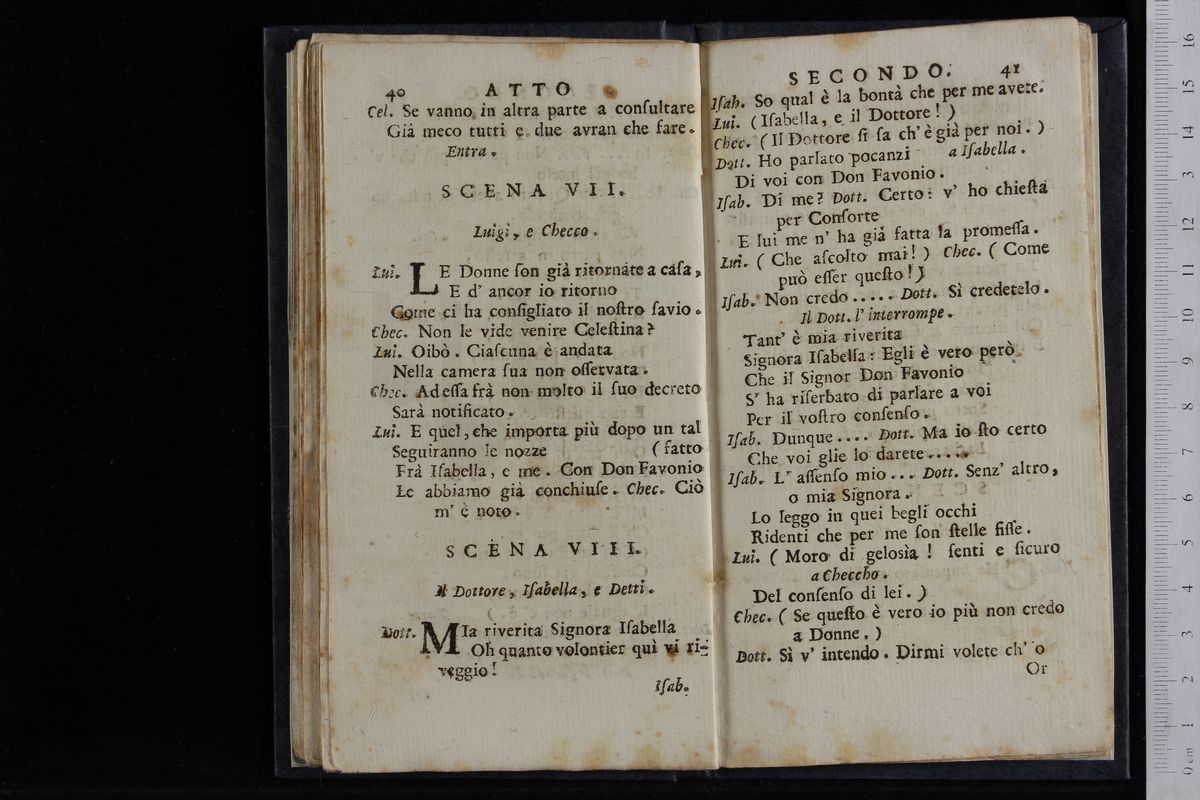 40 ATTO
Cel. Se vanno in altra parte a conſultare
Già meco tutti e due avran che fare.
Entra.
SCENA VII.
Luigi, e Checco.
Lui. LE Donne ſon già ritornate a caſa,
E d' ancor io ritorno
Come ci ha conſigliato il noſtro ſavio.
Chec. Non le vide venire Celeſtina?
Lui. Oibò. Ciaſcuna è andata
Nella camera ſua non oſſervata.
Chec. Adeſſa frà non molto il ſuo decreto
Sarà notificato.
Lui. E quel, che importa più dopo un tal
Seguiranno le nozze (fatto
Frà Iſabella, e me. Con Don Favonio
Le abbiamo già conchiuſe. Chec. Ciò
m' è noto.
SCENA VIII.
Il Dottore, Iſabella, e Detti.
Dott. MIa riverita Signora Iſabella
Oh quanto volontier quì vi ri-
veggio!
Iſab.
SECONDO. 41
Iſab. So qual è la bontà che per me avete.
Lui. (Iſabella, e il Dottore!)
Chec. (Il Dottore ſi ſa ch' è già per noi.)
Dott. Ho parlato pocanzi a Iſabella.
Di voi con Don Favonio.
Iſab. Di me? Dott. Certo: v' ho chieſta
per Conſorte
E lui me n' ha già fatta la promeſſa.
Lui. (Che aſcolto mai!) Chec. (Come
può eſſer queſto!)
Iſab. Non credo..... Dott. Sì credetelo.
Il Dott. l' interrompe.
Tant' è mia riverita
Signora Iſabella: Egli è vero però
Che il Signor Don Favonio
S' ha riſerbato di parlare a voi
Per il voſtro conſenſo.
Iſab. Dunque.... Dott. Ma io ſto certo
Che voi glie lo darete.....
Iſab. L' aſſenſo mio... Dott. Senz' altro,
o mia Signora.
Lo leggo in quei begli occhi
Ridenti che per me ſon ſtelle fiſſe.
Lui. (Moro di gelosìa! ſenti e ſicuro
a Checcho.
Del conſenſo di lei.)
Chec. (Se queſto è vero io più non credo
a Donne.)
Dott. Sì v' intendo. Dirmi volete ch' o
Or
0 cm 1 2 3 4 5 6 7 8 9 10 11 12 13 14 15 16